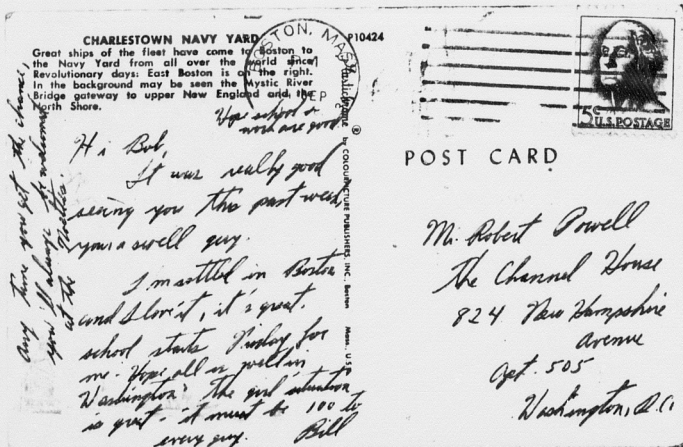 CHARLESTOWN NAVY YARD
P10424
Great ships of the fleet have come to Boston to
the Navy Yard from all over the world since
Revolutionary days: East Boston is on the right.
In the background may be seen the Mystic River
Bridge gateway to upper New England and the
North Shore.
BOSTON, MASS
SEP
Hope school &
work are good
Hi Bob,
It was really good
seeing you this past week,
your a swell guy.
I'm settled in Boston
and I love it, it's great.
school starts Friday for
me. Hope all is well in
Washington. The girl situation
is great. it must be 100 to
every guy. Bill
Any time you get the chance,
you'll always be welcome
at the
Plastichrome ® by COLOURPICTURE PUBLISHERS, INC., Boston Mass. U.S.
5¢ U.S. POSTAGE
POST CARD
Mr. Robert Powell
The Channel House
824 New Hampshire
Avenue
Apt. 505
Washington, D.C.